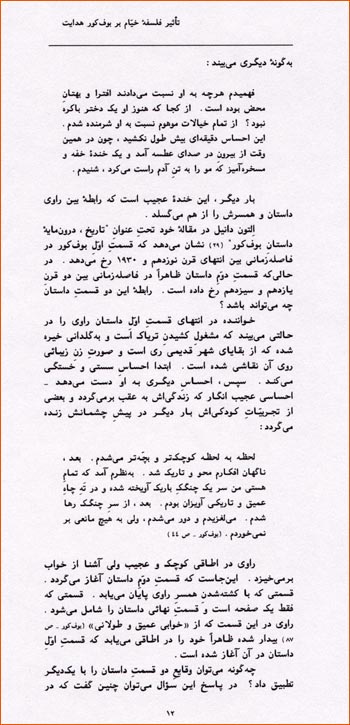 تأثیر فلسفهٔ خیّام بر بوف‌کور هدایت
به‌گونهٔ دیگری می‌بیند :
فهمیدم هرچه به او نسبت می‌دادند افترا و بهتان
محض بوده است . از کجا که هنوز او یک دختر باکره
نبود؟ از تمام خیالات موهوم نسبت به او شرمنده شدم .
این احساس دقیقه‌ای بیش طول نکشید ، چون در همین
وقت از بیرون در صدای عطسه آمد و یک خندهٔ خفه و
مسخره‌آمیز که مو را به تنِ آدم راست می‌کرد ، شنیدم .
بار دیگر ، این خندهٔ عجیب است که رابطهٔ بین راوی
داستان و همسرش را از هم می‌گسلد .
اِلتون دانیل در مقالهٔ خود تحتِ عنوان "تاریخ ، درون‌مایهٔ
داستان بوف‌کور" (۲۹) نشان می‌دهد که قسمتِ اوّلِ بوف‌کور در
فاصله‌زمانی بین انتهای قرن نوزدهم و ۱۹۳۰ رخ می‌دهد . در
حالی‌که قسمتِ دوّم داستان ظاهراً در فاصله‌زمانی بین دو قرن
یازدهم و سیزدهم رخ داده است . رابطهٔ این دو قسمتِ داستان
چه می‌تواند باشد ؟
خواننده در انتهای قسمتِ اوّل داستان راوی را در
حالتی می‌بیند که مشغولِ کشیدنِ تریاک است و به‌گلدانی خیره
شده که از بقایای شهر قدیمی ری است و صورتِ زنِ زیبائی
روی آن نقاشی شده است . ابتدا احساسِ سستی و خستگی
می‌کند . سپس ، احساسِ دیگری به او دست می‌دهد ـ
احساسی عجیب انگار که زندگی‌اش به عقب برمی‌گردد و بعضی
از تجربیّاتِ کودکی‌اش بار دیگر در پیشِ چشمانش زنده
می‌گردد :
لحظه به لحظه کوچکتر و بچّه‌تر می‌شدم . بعد ،
ناگهان افکارم محو و تاریک شد . به‌نظرم آمد که تمامِ
هستی من سرِ یک چنگکِ باریک آویخته شده و در تَهِ چاهِ
عمیق و تاریکی آویزان بودم . بعد ، از سرِ چنگک رها
شدم . می‌لغزیدم و دور می‌شدم ، ولی به هیچ مانعی بر
نمی‌خوردم . (بوف‌کور ـ ص ۴۴)
راوی در اطاقی کوچک و عجیب ولی آشنا از خواب
برمی‌خیزد . این‌جاست که قسمتِ دوّم داستان آغاز می‌گردد .
قسمتی که با کشته‌شدن همسرِ راوی پایان می‌یابد . قسمتی که
فقط یک صفحه است و قسمتِ نهائی داستان را شامل می‌شود .
راوی در این قسمت که از «خوابی عمیق و طولانی» (بوف‌کور ـ ص
۸۷) بیدار شده ظاهراً خود را در اطاقی می‌یابد که قسمتِ اوّلِ
داستان در آن آغاز شده است .
چه‌گونه می‌توان وقایعِ دو قسمتِ داستان را با یک‌دیگر
تطبیق داد؟ در پاسخ این سئوال می‌توان چنین گفت که در
۱۲